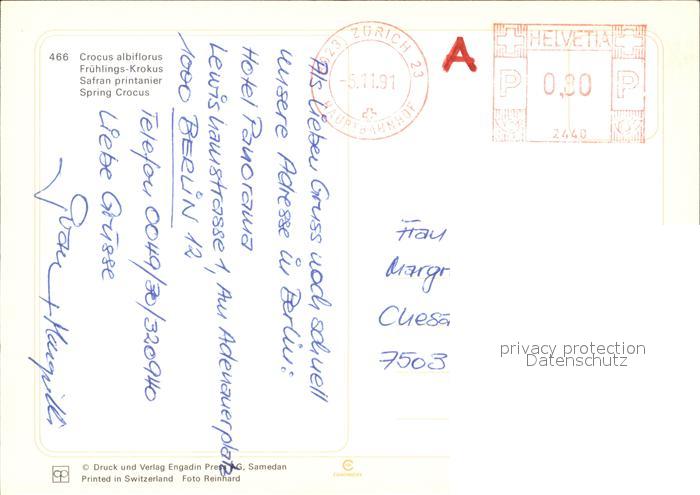 466 Crocus albiflorus
Frühlings-Krokus
Safran printanier
Spring Crocus
8023 ZÜRICH 23
-5.11.91
HAUPTBAHNHOF
A
HELVETIA
P
0,80
P
2440
Als lieben Gruss noch schnell
unsere Adresse in Berlin:
Hotel Panorama
Lewishamstrasse 1, Am Adenauerplatz
1000 BERLIN 12
Telefon 0049/30/320940
Liebe Grüsse
Frau
Margr
Chesa
7503
privacy protection
Datenschutz
© Druck und Verlag Engadin Press AG, Samedan
Printed in Switzerland Foto Reinhard